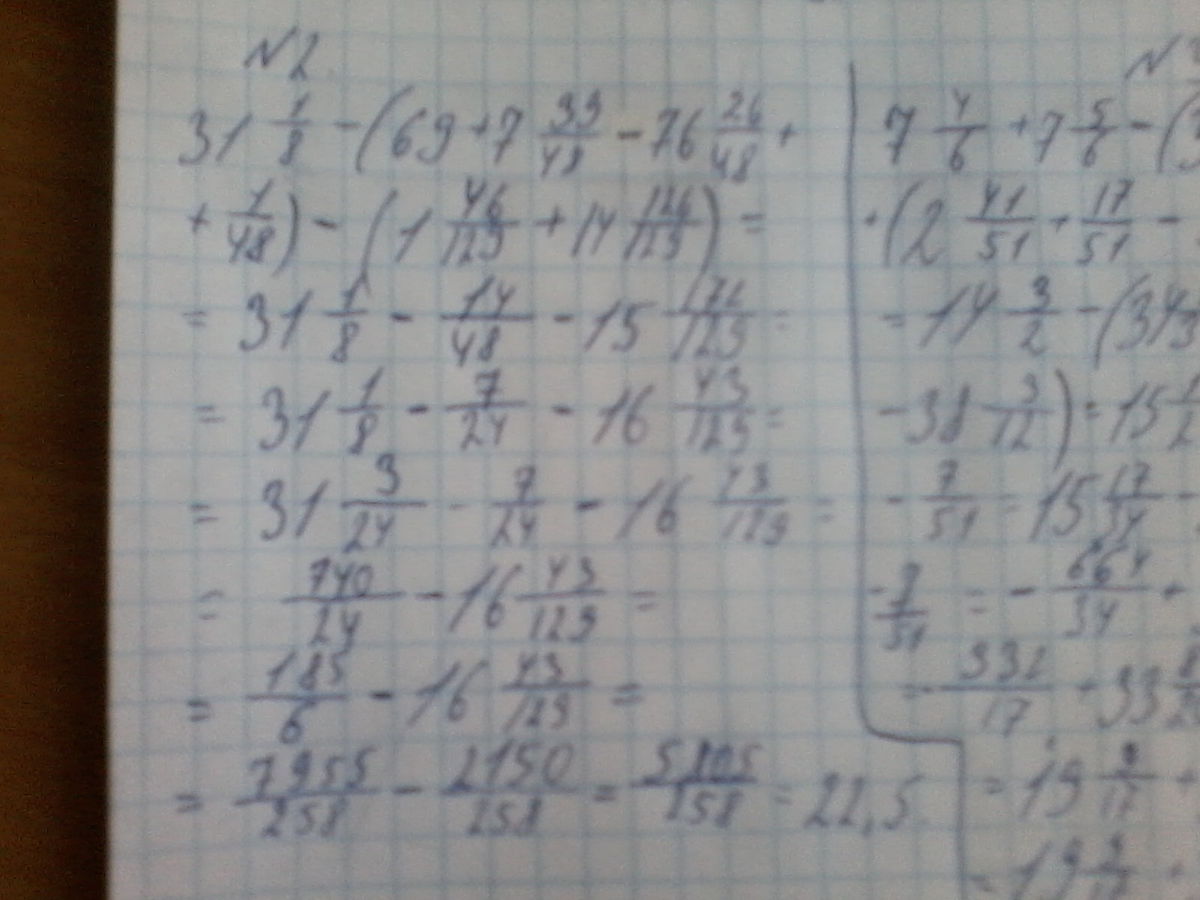 N2
31 1/8 - (69 + 7 39/48 - 76 26/48 +
+ 1/48) - (1 46/129 + 14 126/129) =
= 31 1/8 - 14/48 - 15 172/129 =
= 31 1/8 - 7/24 - 16 43/129 =
= 31 3/24 - 7/24 - 16 43/129 =
= 740/24 - 16 43/129 =
= 185/6 - 16 43/129 =
= 7955/258 - 2150/258 = 5805/258 = 22,5
N
7 4/6 + 7 5/6 - (3
+ (2 41/51 + 17/51 -
= 14 3/2 - (34
- 38 3/12) = 15 1/2
- 7/51 = 15 17/34 -
- 7/51 = - 664/34 -
= 332/17 - 33 8
= 19 9/17 +
= 19 9/17